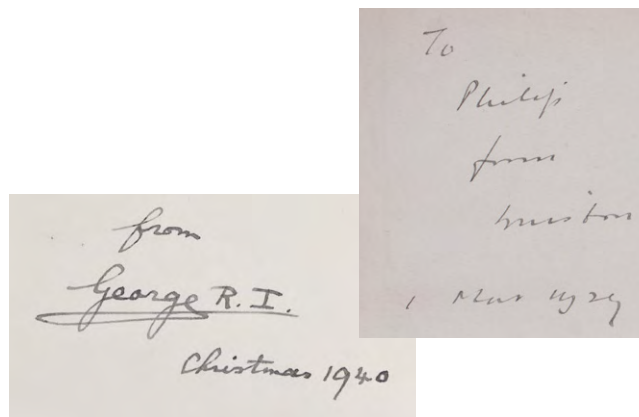 To
Philip
from
Winston
1 Mar 1929
from
George R.I.
Christmas 1940